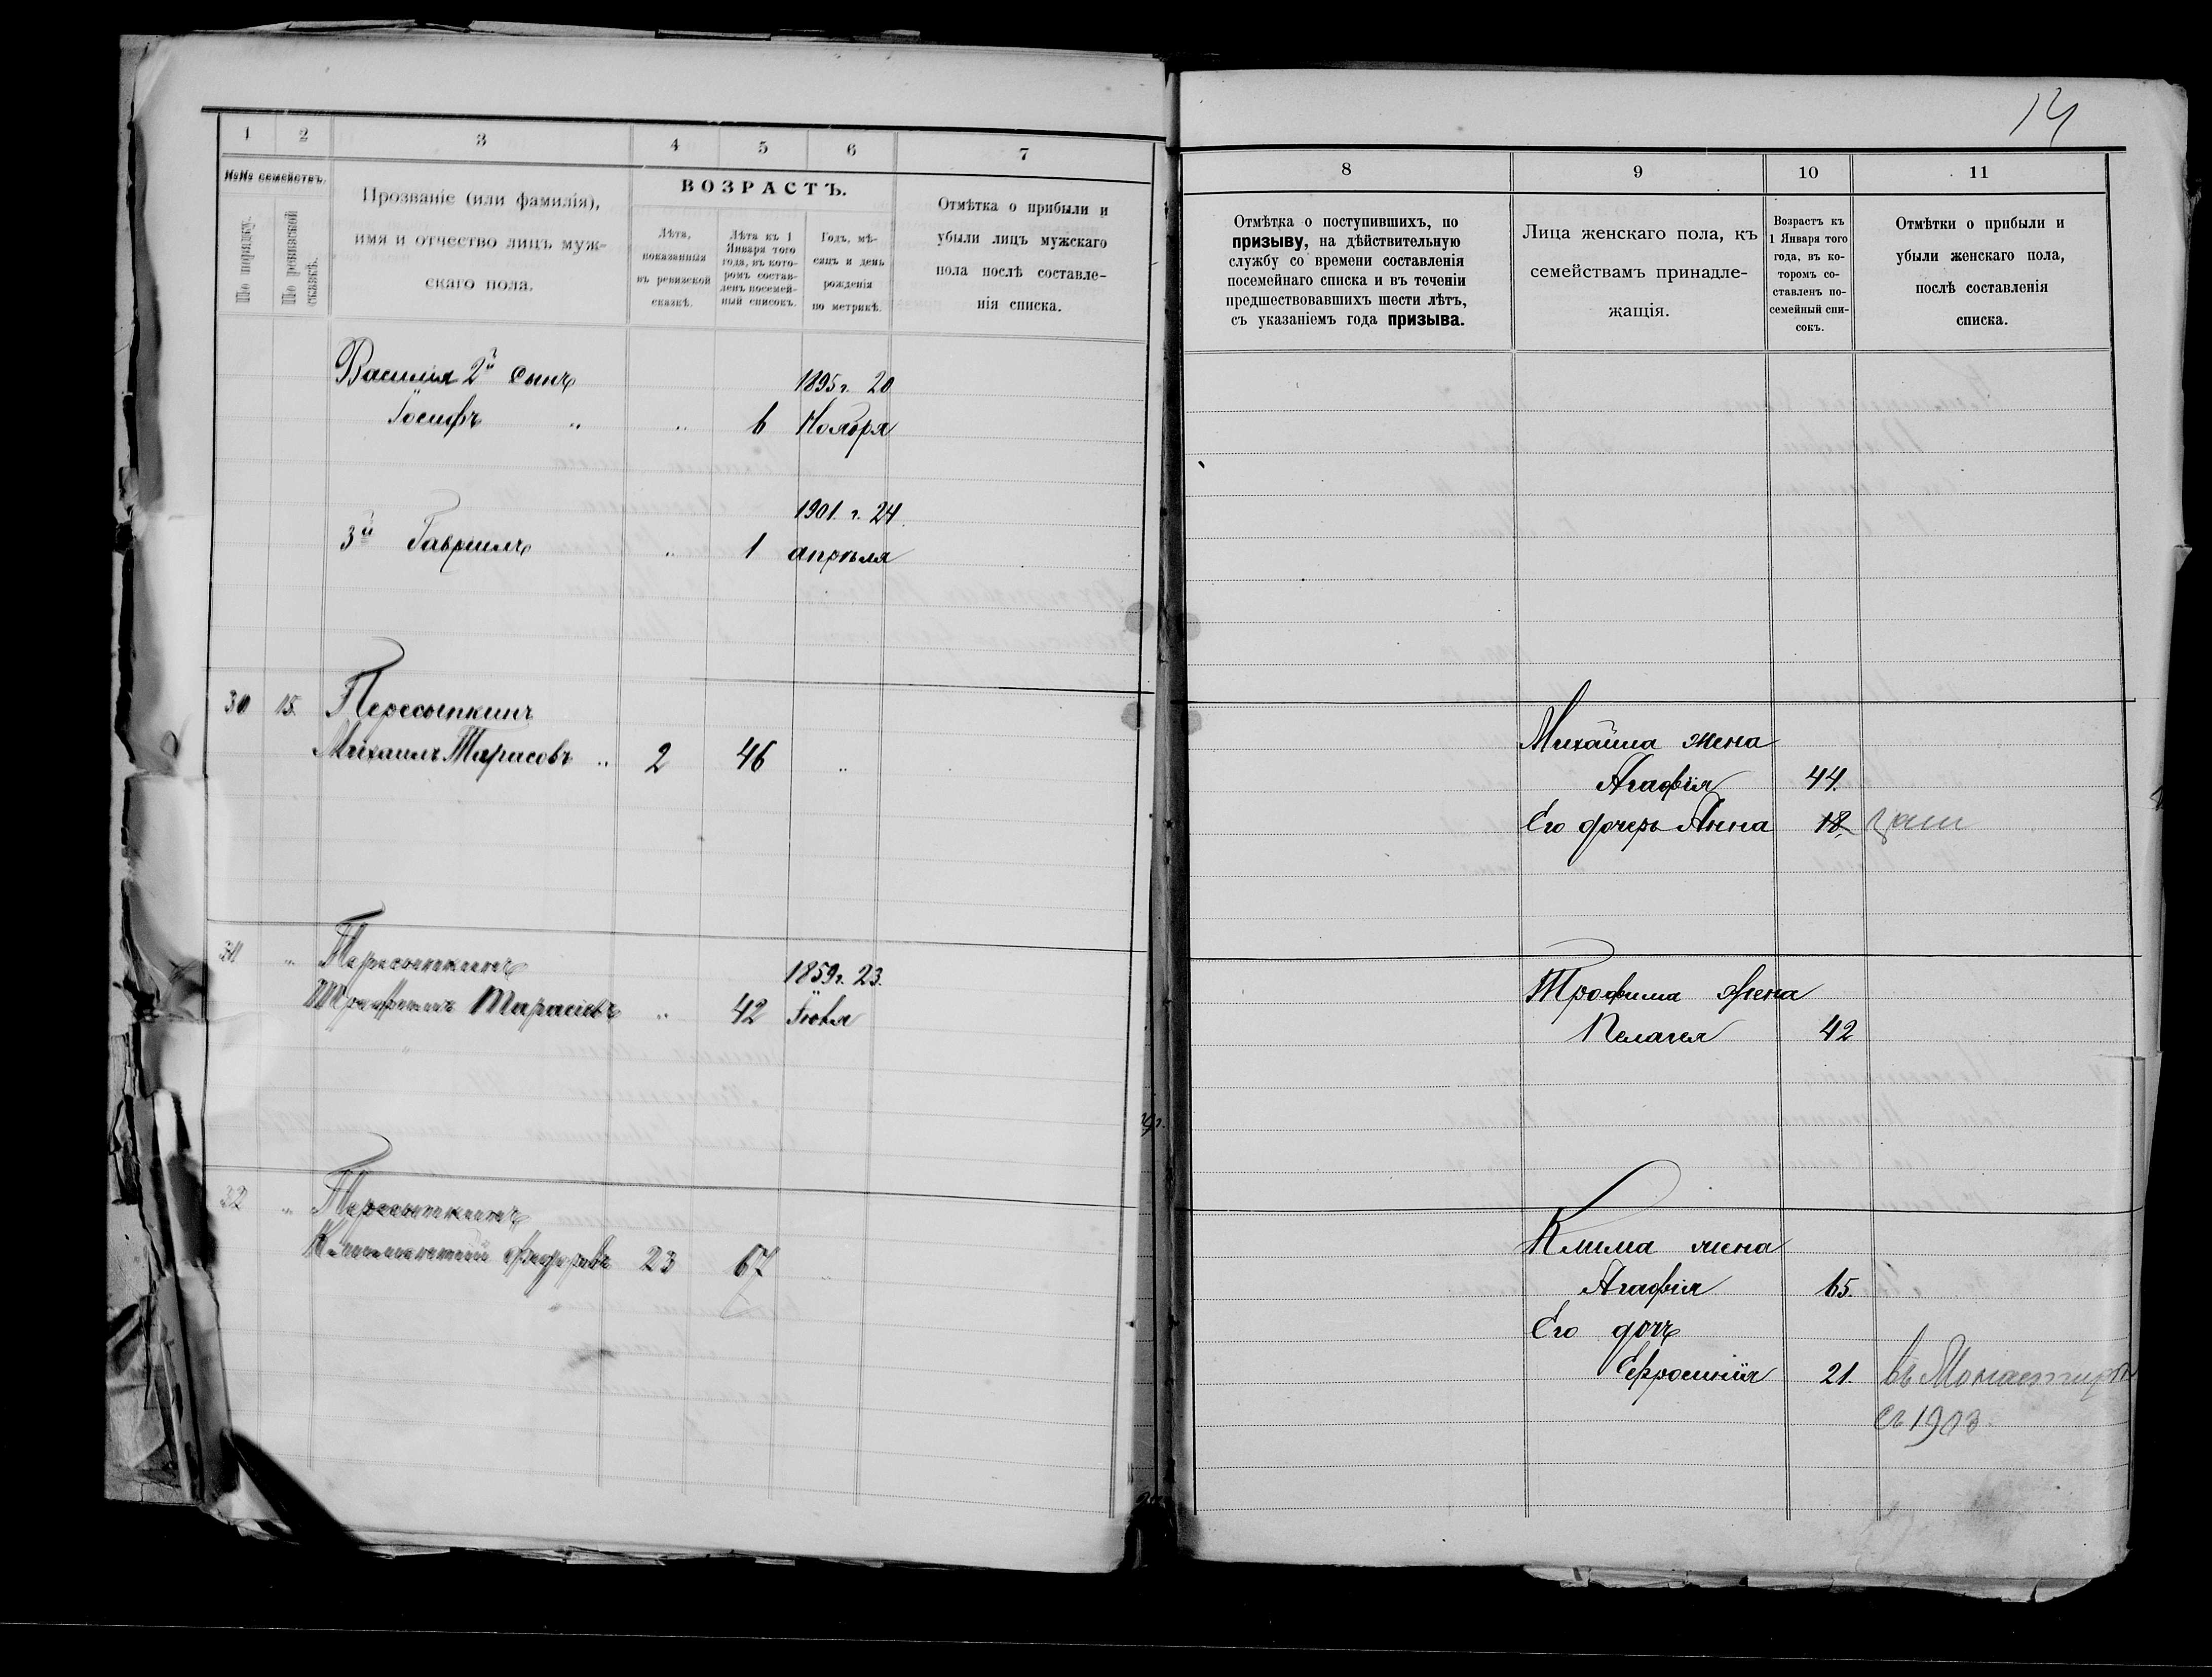 14
1 2 3 4 5 6 7
№№ семействъ.
По порядку.
По ревизской сказкѣ.
Прозваніе (или фамилія),
имя и отчество лицъ муж-
скаго пола.
ВОЗРАСТЪ.
Лѣта,
показанныя
въ ревизской
сказкѣ.
Лѣта къ 1
Января того
года, въ кото-
ромъ состав-
ленъ посемей-
ный списокъ.
Годъ, мѣ-
сяцъ и день
рожденія
по метрикѣ.
Отмѣтка о прибыли и
убыли лицъ мужскаго
пола послѣ составле-
нія списка.
Василія 2й сынъ 1895 г. 20
Іосифъ " " 6 Ноября
1901 г. 24
3й Гавріилъ " 1 апрѣля
30 15. Пересыпкинъ
Михаилъ Тарасовъ " 2 46 "
31 " Пересыпкинъ 1859 г. 23.
Трофимъ Тарасовъ " 42 Іюля
32 " Пересыпкинъ
Климентий Федоровъ 23 67 "
8 9 10 11
Отмѣтка о поступившихъ, по
призыву, на дѣйствительную
службу со времени составленія
посемейнаго списка и въ теченіи
предшествовавшихъ шести лѣтъ,
съ указаніемъ года призыва.
Лица женскаго пола, къ
семействамъ принадле-
жащія.
Возрастъ къ
1 Января того
года, въ ко-
торомъ со-
ставленъ по-
семейный спи-
сокъ.
Отмѣтки о прибыли и
убыли женскаго пола,
послѣ составленія
списка.
Михаила жена
Агафія 44.
Его дочерь Анна 18.
Трофима жена
Пелагея 42
Клима жена
Агафія 65.
Его дочъ
Ефросинія 21. въ Монастыре
съ 1903